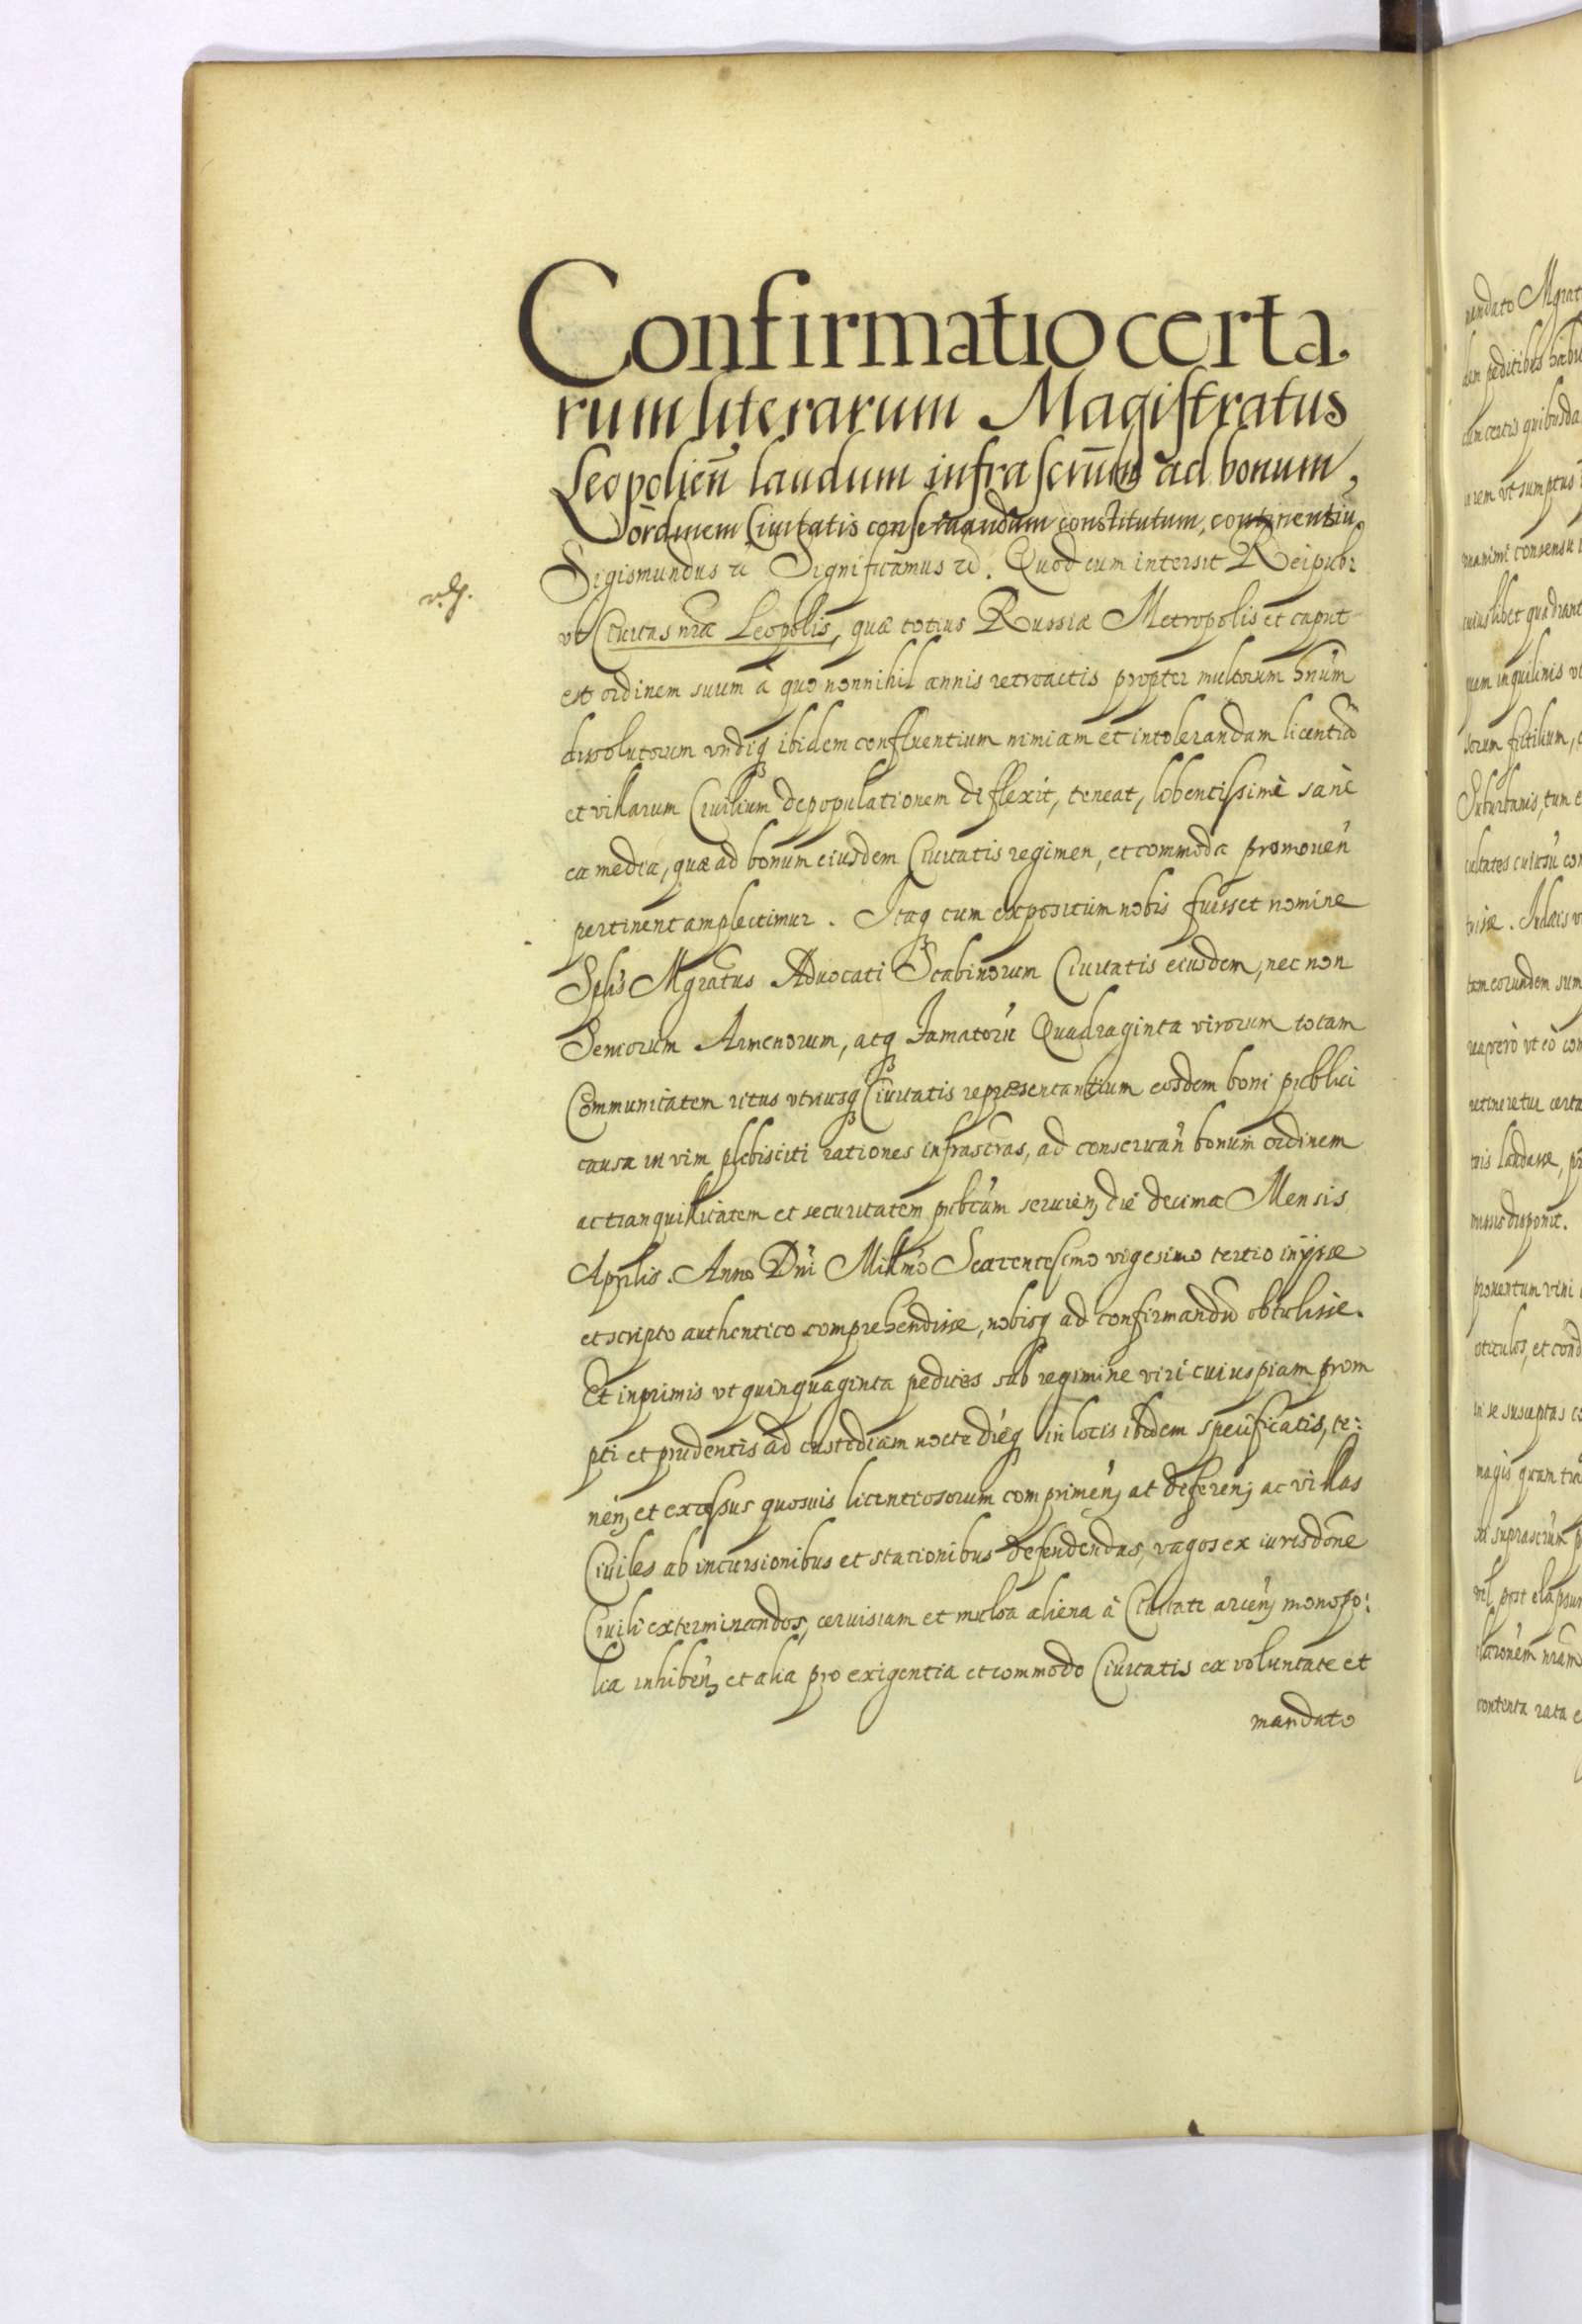 Confirmatio certa
rum literarum Magistratus
Leopolien̄ laudum infrascrūm ad bonum
ordinem Ciuitatis conseruandum constitutum, continentiū.
Sigismundus etc Significamus etc. Quod cum intersit Reipub:
vt Ciuitas nr̃a Leopolis, quæ totius Russiæ Metropolis et caput
est ordinem suum à quo nonnihil annis retroactis propter multorum hn̄um
dissolutorum vndiq; ibidem confluentium nimiam et intolerandam licentiā
et villarum Ciuilium depopulationem deflexit, teneat, lobentissimè sanè
ea media, quæ ad bonum eiusdem Ciuitatis regimen, et commoda promouen̄
pertinent amplectimur. Itaq; cum expositum nobis fuisset nomine
Splis Mgratus Aduocati Scabinorum Ciuitatis eiusdem, nec non
Seniorum Armenorum, atq; Iuratorū Quadraginta virorum totam
Communitatem ritus vtriusq; Ciuitatis repræsentantium eosdem boni publici
causa in vim plebisciti rationes infrascras, ad conseruan̄ bonum ordinem
ac tranquillitatem et securitatem pubcam seruien̄, die decima Mensis
Aprilis. Anno Dni Millmo Sexcentesimo vigesimo tertio inijsse
et scripto authentico comprehendisse, nobisq; ad confirmandū obtulisse.
Et inprimis vt quinquaginta pedites sub regimine viri cuiuspiam prom
pti et prudentis ad custodiam nocte diéq; in locis ibidem specificatis, te:
nen̄, et excessus quosuis licentiosorum comprimen̄, at deferen̄, ac villas
Ciuiles ab incursionibus et stationibus defendendas, vagos ex iurisdōne
Ciuili exterminandos, ceruisiam et mulsa aliena à Ciuitate arcen̄, monopo:
lia inhiben̄, et alia pro exigentia et commodo Ciuitatis ex voluntate et
mandato